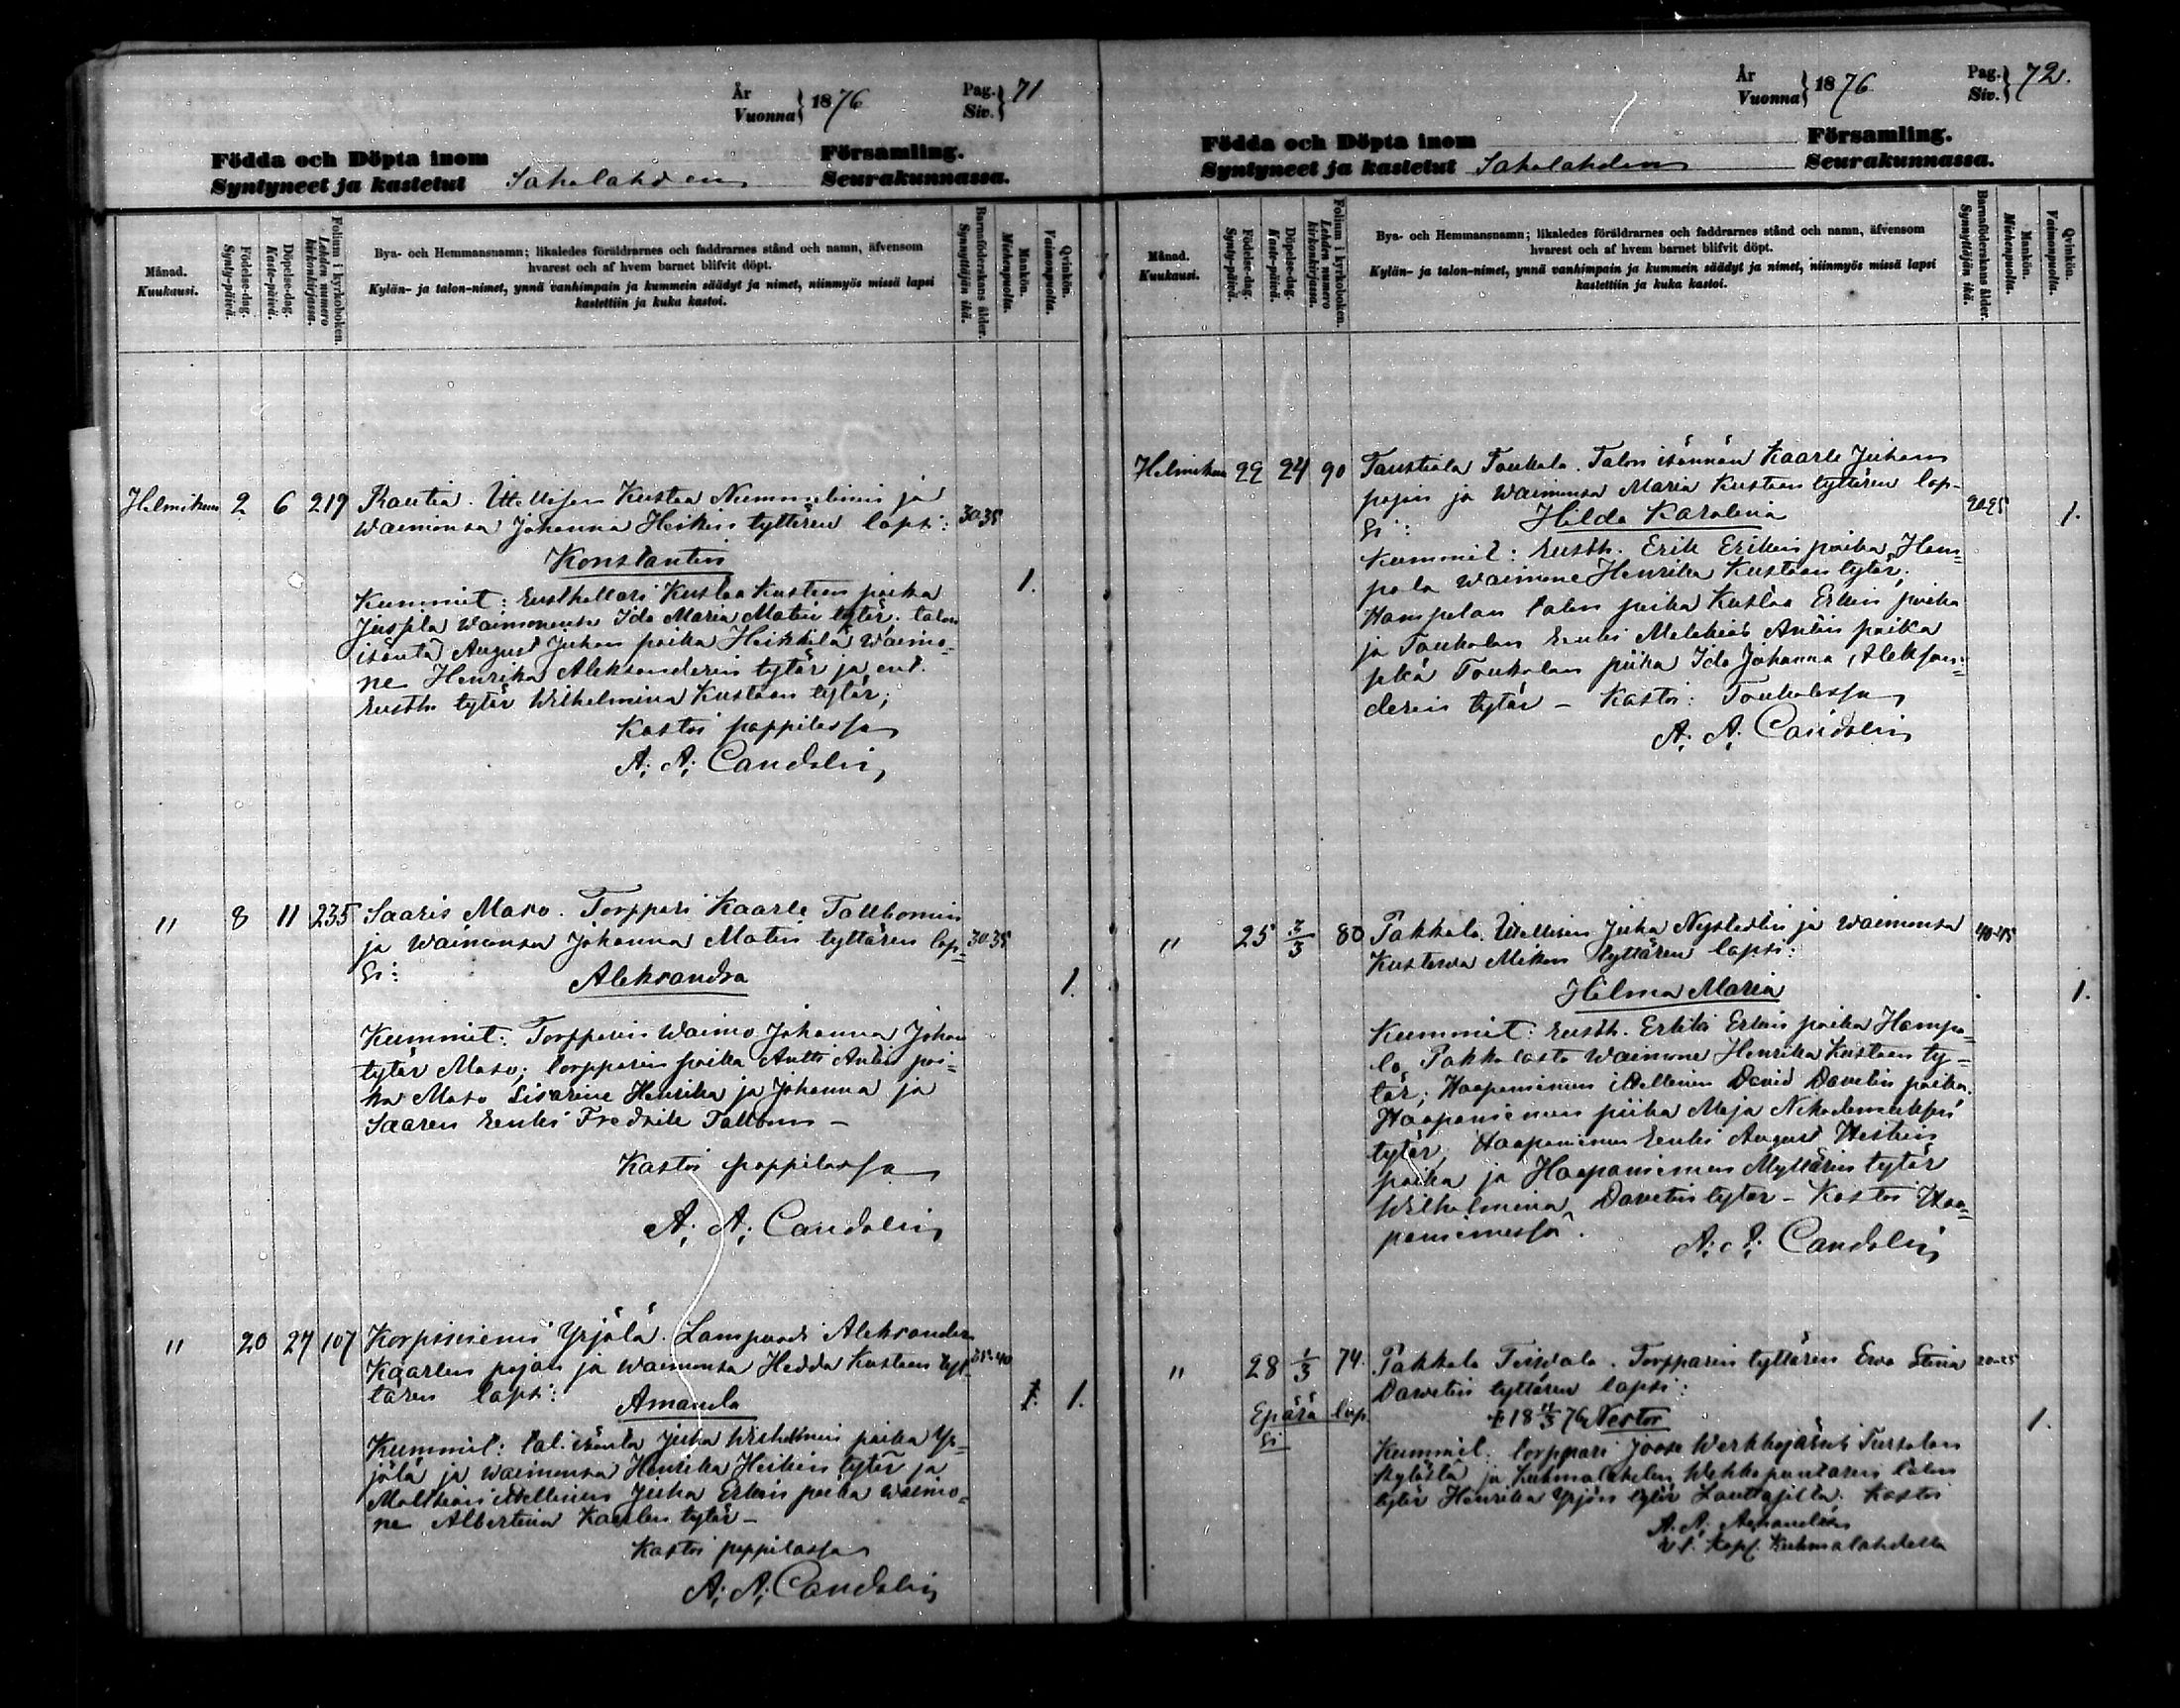 År
Vuonna } 1876
Pag.
Siv. } 71
Födda och Döpta inom Församling.
Syntyneet ja kastetut Sahalahden Seurakunnassa.
Månad.
Kuukausi.
Födelse-dag.
Synty-päivä.
Döpelse-dag.
Kaste-päivä.
Folium i kyrkoboken.
Lehden numero
kirkonkirjassa.
Bya- och Hemmansnamn; likaledes föräldrarnes och faddrarnes stånd och namn, äfvensom
hvarest och af hvem barnet blifvit döpt.
Kylän- ja talon-nimet, ynnä vanhimpain ja kummein säädyt ja nimet, niinmyös missä lapsi
kastettiin ja kuka kastoi.
Barnaföderskans ålder.
Synnyttäjän ikä.
Mankön.
Miehenpuolta.
Qvinkön.
Vaimonpuolta.
Helmikuu 2 6 219 Rautia. Itellisen Kustaa Nummelinin ja
waimonsa Johanna Heikin tyttären lapsi: 30-35
Konstantin
1.
Kummit: Eusthollari Kustaa Kustaan poika
Jussila waimonensa Ida Maria Matin tytär; talon
isäntä August Juhan poika Heikkilä waimo-
ne Henrika Aleksanderin tytär ja ent.
Eusth. tytär Wilhelmina Kustaan tytär;
Kastoi pappilassa
A. A. Candolin
" 8 11 235 Saaris Maso. Torppari Kaarle Tallbomin
ja waimonsa Johanna Matin tyttären lap- 30-35
si: Aleksandra
1.
Kummit: Torpparin waimo Johanna Johan
tytär Maso; torpparin poika Antti Antin poi-
ka Maso Henrika ja Johanna ja
Saaren renki Fredrik Tallbom –
Kastoi pappilassa
A. A. Candolin
" 20 27 107 Korpiniemi Yrjölä. Lampuodi Aleksander
Kaarlen pojan ja waimonsa Hedda Kustaan tyt- 35-40
tären lapsi: Amanda
1.
Kummit: tal. isäntä Juha Wilhelmin poika Yr-
jölä ja waimonsa Henrika Heikin tytär ja
itellinen Juha Erkin poika waimo-
ne Albertina Kaarlen tytär –
Kastoi pappilassa
A. A. Candolin
År
Vuonna } 1876
Pag.
Siv. } 72.
Födda och Döpta inom Församling.
Syntyneet ja kastetut Sahalahden Seurakunnassa.
Månad.
Kuukausi.
Födelse-dag.
Synty-päivä.
Döpelse-dag.
Kaste-päivä.
Folium i kyrkoboken.
Lehden numero
kirkonkirjassa.
Bya- och Hemmansnamn; likaledes föräldrarnes och faddrarnes stånd och namn, äfvensom
hvarest och af hvem barnet blifvit döpt.
Kylän- ja talon-nimet, ynnä vanhimpain ja kummein säädyt ja nimet, niinmyös missä lapsi
kastettiin ja kuka kastoi.
Barnaföderskans ålder.
Synnyttäjän ikä.
Mankön.
Miehenpuolta.
Qvinkön.
Vaimonpuolta.
Helmikuu 22 24 90 Taustiala Toukola. Talon isännän Kaarle Juhan
pojan ja waimonsa Maria Kustaan tyttären lap- 20-25
si: Hilda Karolina
1.
Kummit: Eusth. Erik Erikin poika Ham-
pala waimone Henrika Kustaan tytär;
Hampalan talon poika Kustaa Erkin poika
ja Toukolan renki Melkias Antin poika
sekä Toukolan piika Ida Johanna Aleksan-
derin tytär – Kastoi: Toukolassa
A. A. Candolin
" 25 3/3 80 Pakkala. Itellisen Juha Nystedtin ja waimonsa 40-45
Kustawa Mikon tyttären lapsi:
Hilma Maria
1.
Kummit: Eusth. Erkki Erkin poika Hampa-
la Pakkalasta waimone Henrika Kustaan ty-
tär; Haapaniemen itellinen David Davetin poika;
Haapaniemen piika Maja Nikodemuksen
tytär, Haapaniemen renki August Heikin
poika ja Haapaniemen Myllärin tytär
Wilhelmina Davetin tytär – Kastoi Haa-
paniemessä.
A. A. Candolin
" 28 1/3 74. Pakkala Toiwala. Torpparin tyttären Ewa Stina 20-25
Dawetin tyttären lapsi:
Epärä lap
si
+ 18 11/3 76 Nestor
1.
Kummit: torppari Joose Werkkojärvi
kylästä ja Kuhmalahden talon
tytär Henrika Yrjön tytär Kastoi
A. A.
v. t. kapl. Kuhmalahdella